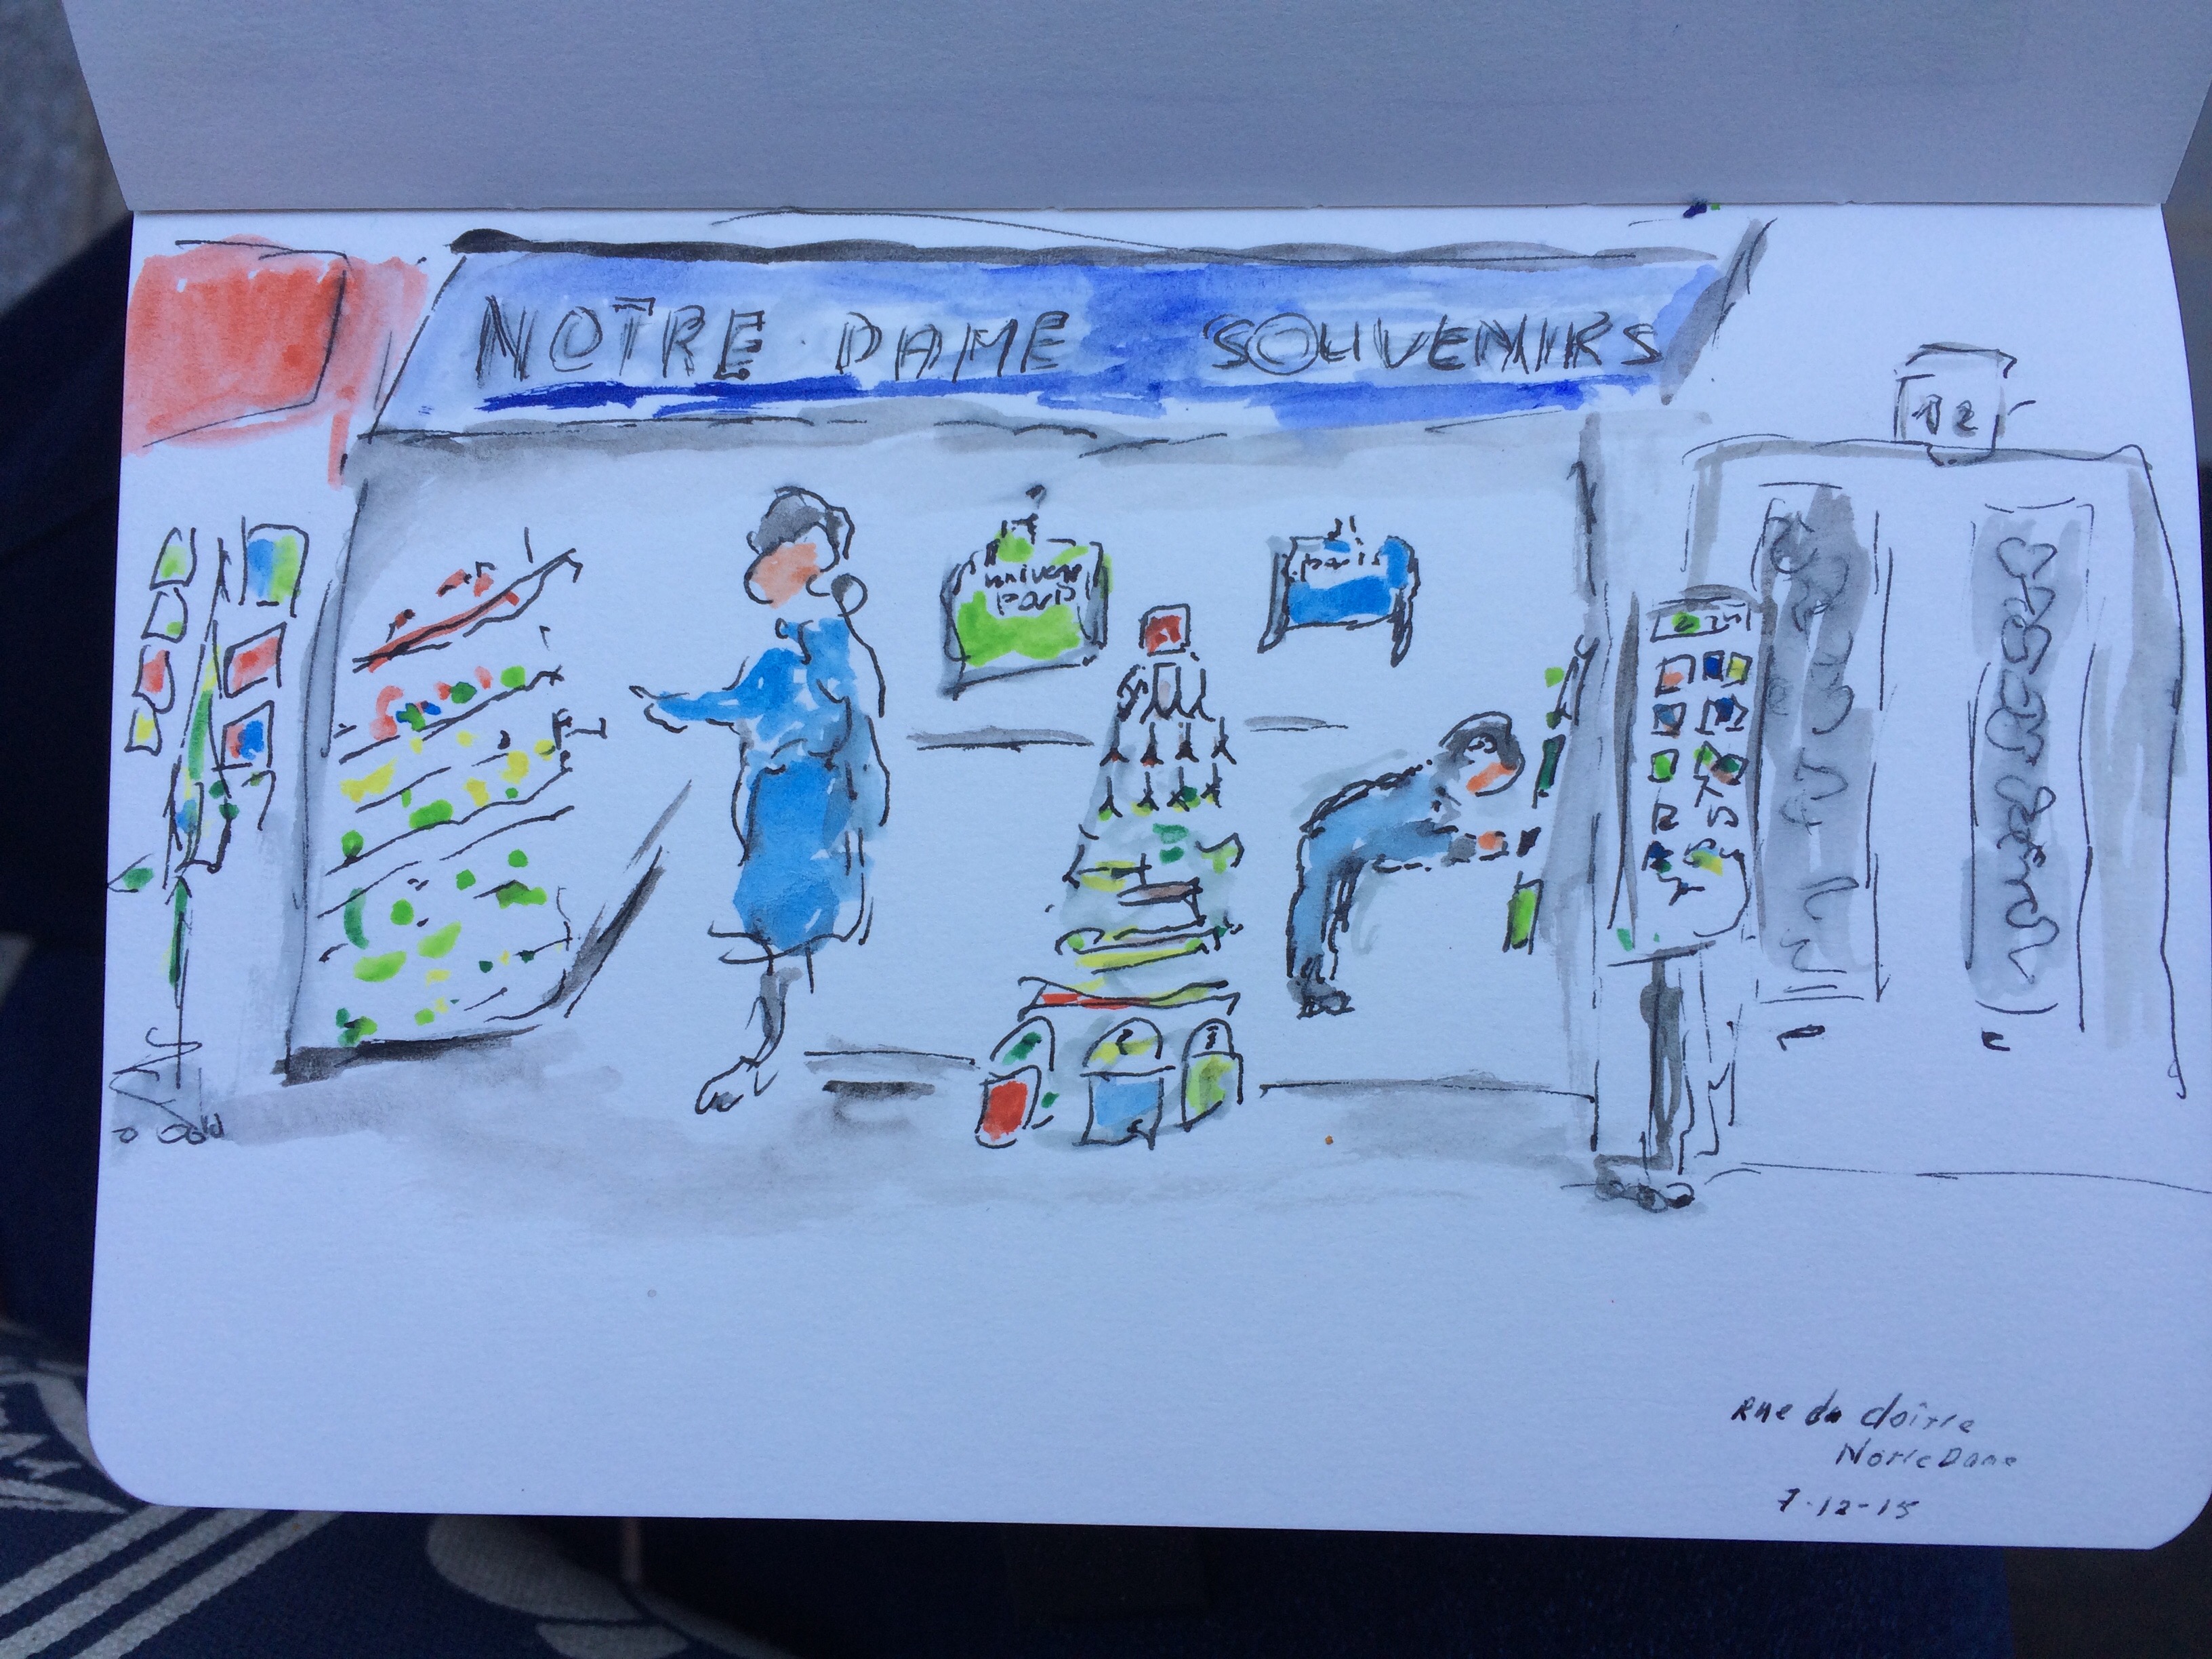 NOTRE DAME SOUVENIRS
12
univers
paris
paris
2
3
Rue du cloître
Notre Dame
7-12-15